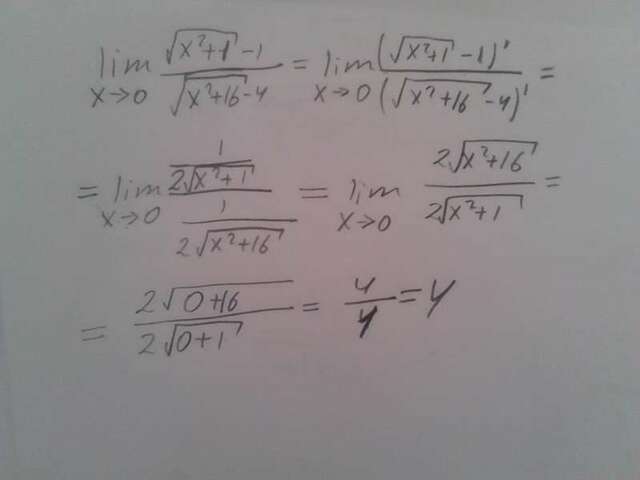 lim x→0 (√(x²+1) - 1)/(√(x²+16) - 4) = lim x→0 (√(x²+1) - 1)'/(√(x²+16) - 4)' =
= lim x→0 (1/(2√(x²+1)))/(1/(2√(x²+16))) = lim x→0 (2√(x²+16))/(2√(x²+1)) =
= (2√(0+16))/(2√(0+1)) = 4/1 = 4